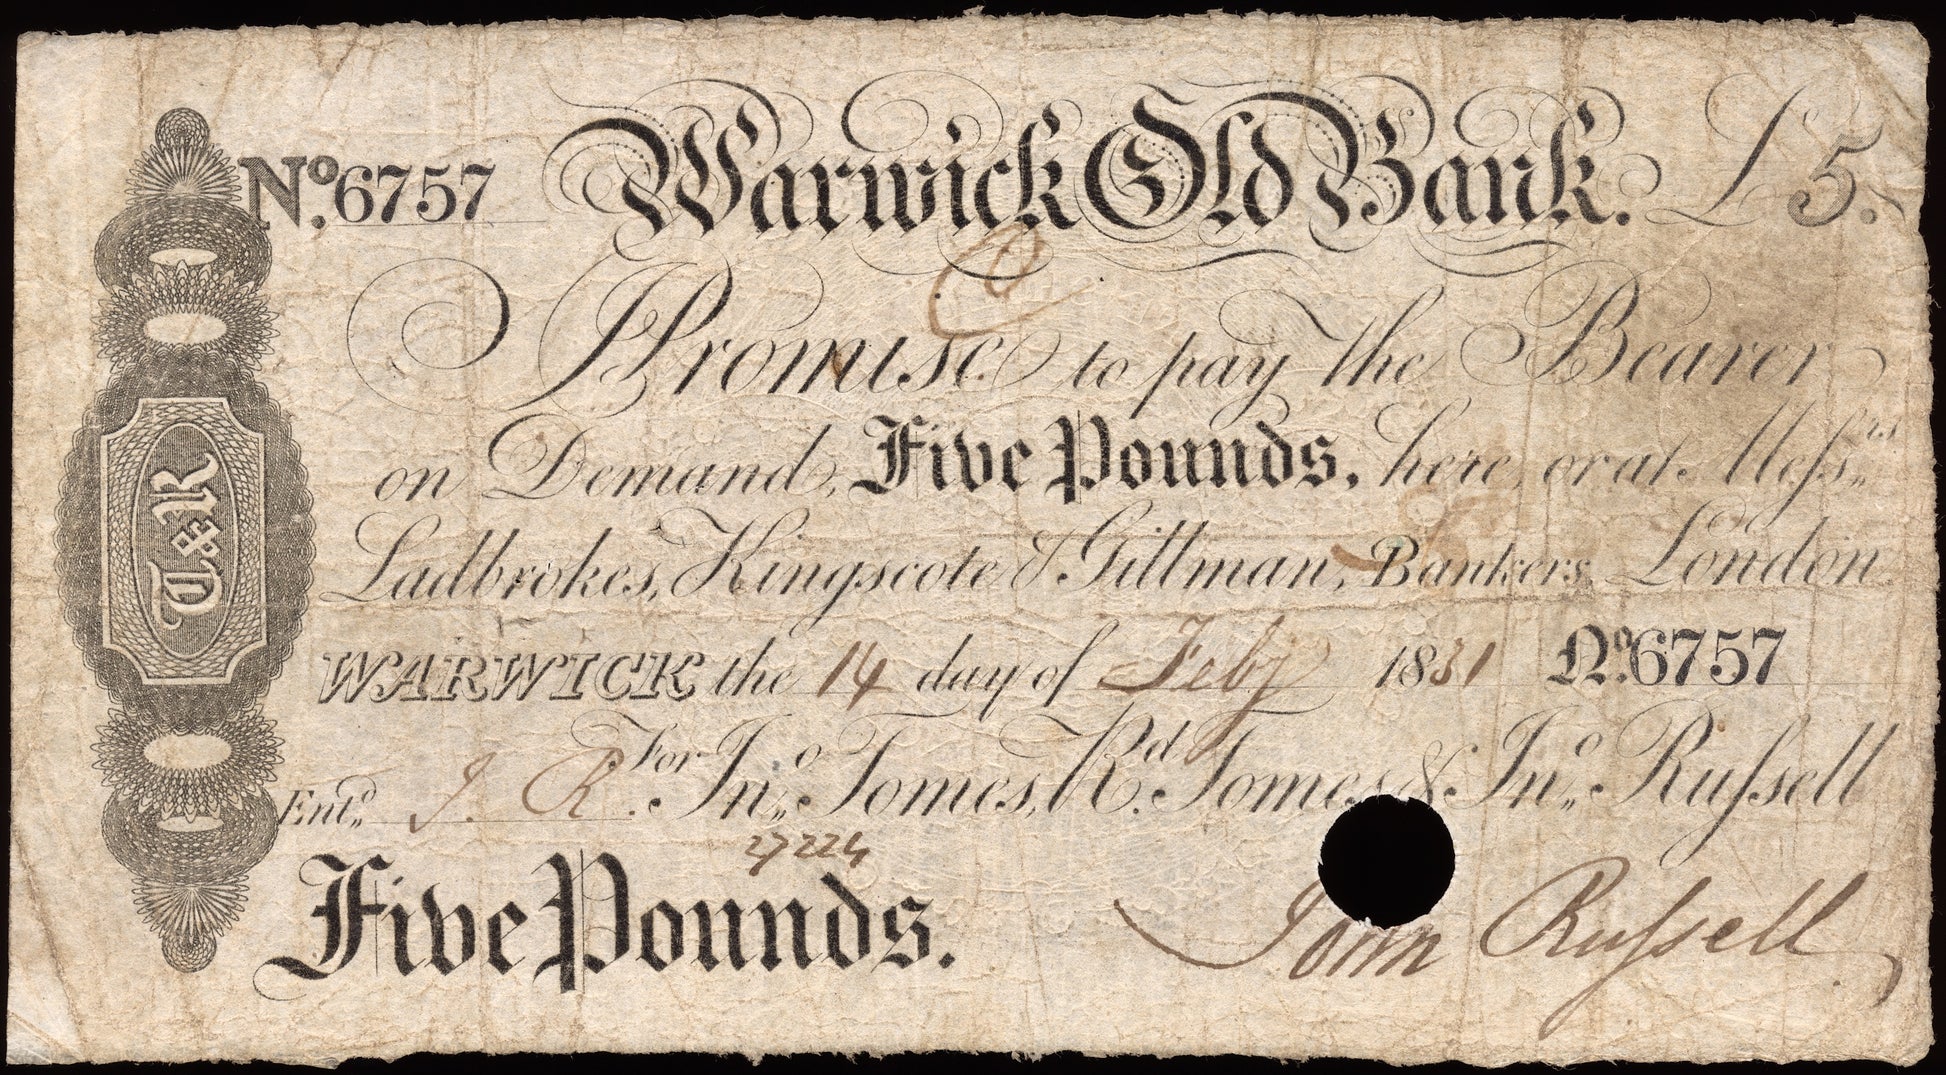 No. 6757 Warwick Old Bank. £5.
I Promise to pay the Bearer
on Demand, Five Pounds, here, or at Meſsrs
Ladbrokes, Kingscote & Gillman, Bankers, London
WARWICK the 14 day of Feby 1831 No. 6757
For Jno. Tomes, Rd. Tomes & Jno. Ruſsell
Entd. J. R.
27224
Five Pounds.
John Ruſsell
T&R